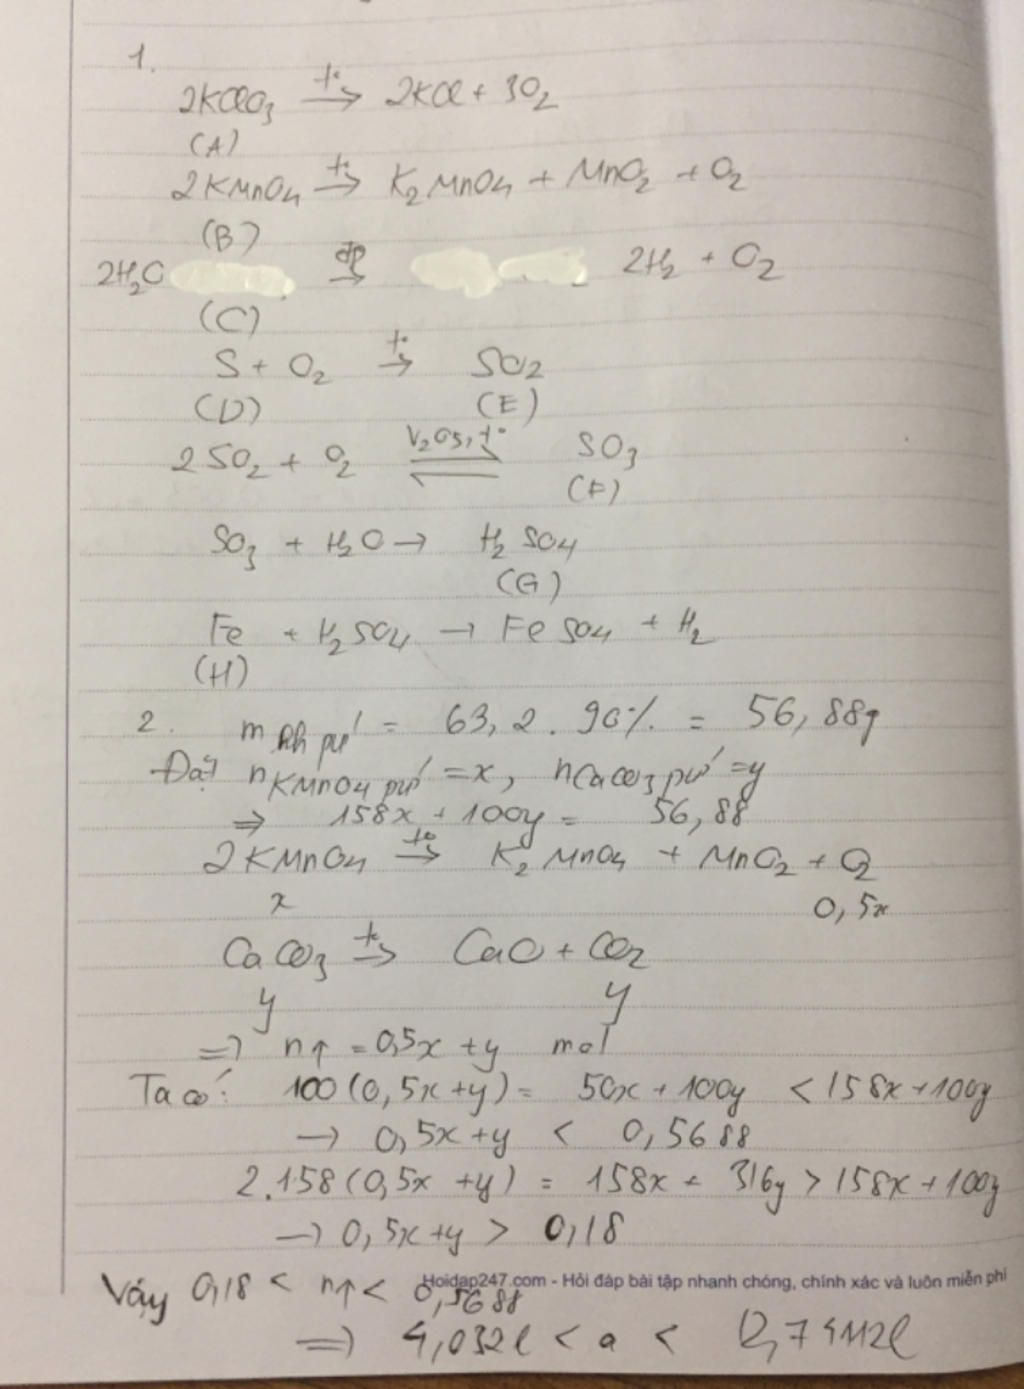 1.
2KClO3 t° → 2KCl + 3O2
(A)
2KMnO4 t° → K2MnO4 + MnO2 + O2
(B)
2H2O đp → 2H2 + O2
(C)
S + O2 t° → SO2
(D) (E)
2SO2 + O2 V2O5, t° ⇌ SO3
(F)
SO3 + H2O → H2SO4
(G)
Fe + H2SO4 → FeSO4 + H2
(H)
2. m hh pứ = 63,2 . 90% = 56,88g
Đặt nKMnO4 pứ = x, nCaCO3 pứ = y
⇒ 158x + 100y = 56,88
2KMnO4 t° → K2MnO4 + MnO2 + O2
x 0,5x
CaCO3 t° → CaO + CO2
y y
⇒ n↑ = 0,5x + y mol
Ta có: 100(0,5x + y) = 50x + 100y < 158x + 100y
→ 0,5x + y < 0,5688
2.158(0,5x + y) = 158x + 316y > 158x + 100y
→ 0,5x + y > 0,18
Hoidap247.com - Hỏi đáp bài tập nhanh chóng, chính xác và luôn miễn phí
Vậy 0,18 < n↑ < 0,5688
⇒ 4,032l < a < 12,74112l